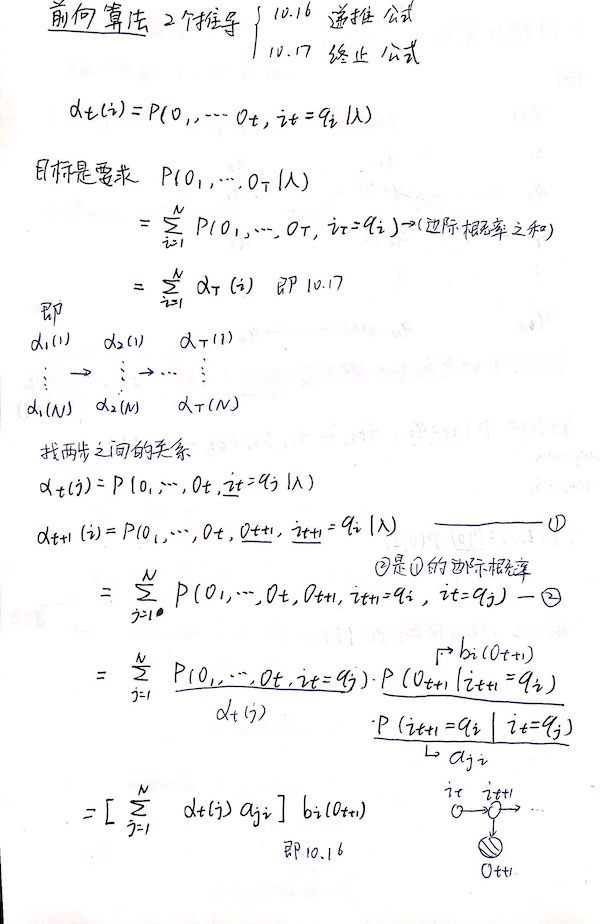 前向算法 2个推导 { 10.16 递推公式
10.17 终止公式
αt(i) = P(O1, ⋯ Ot, it = qi |λ)
目标是要求 P(O1, ⋯, OT |λ)
= ∑_{i=1}^{N} P(O1, ⋯, OT, iT = qi) → (边际概率之和)
= ∑_{i=1}^{N} αT(i) 即 10.17
即
α1(1) α2(1) αT(1)
⋮ → ⋮ → ⋯ ⋮
α1(N) α2(N) αT(N)
找两步之间的关系
αt(j) = P(O1, ⋯, Ot, it = qj |λ)
αt+1(i) = P(O1, ⋯, Ot, Ot+1, it+1 = qi |λ) —— ①
②是①的边际概率
= ∑_{j=1}^{N} P(O1, ⋯, Ot, Ot+1, it+1 = qi, it = qj) — ②
↱ bi(Ot+1)
= ∑_{j=1}^{N} P(O1, ⋯, Ot, it = qj) · P(Ot+1 | it+1 = qi)
αt(j)
· P(it+1 = qi | it = qj)
↳ aji
= [ ∑_{j=1}^{N} αt(j) aji ] bi(Ot+1)
即10.16
it it+1
→ → ⋯
Ot+1